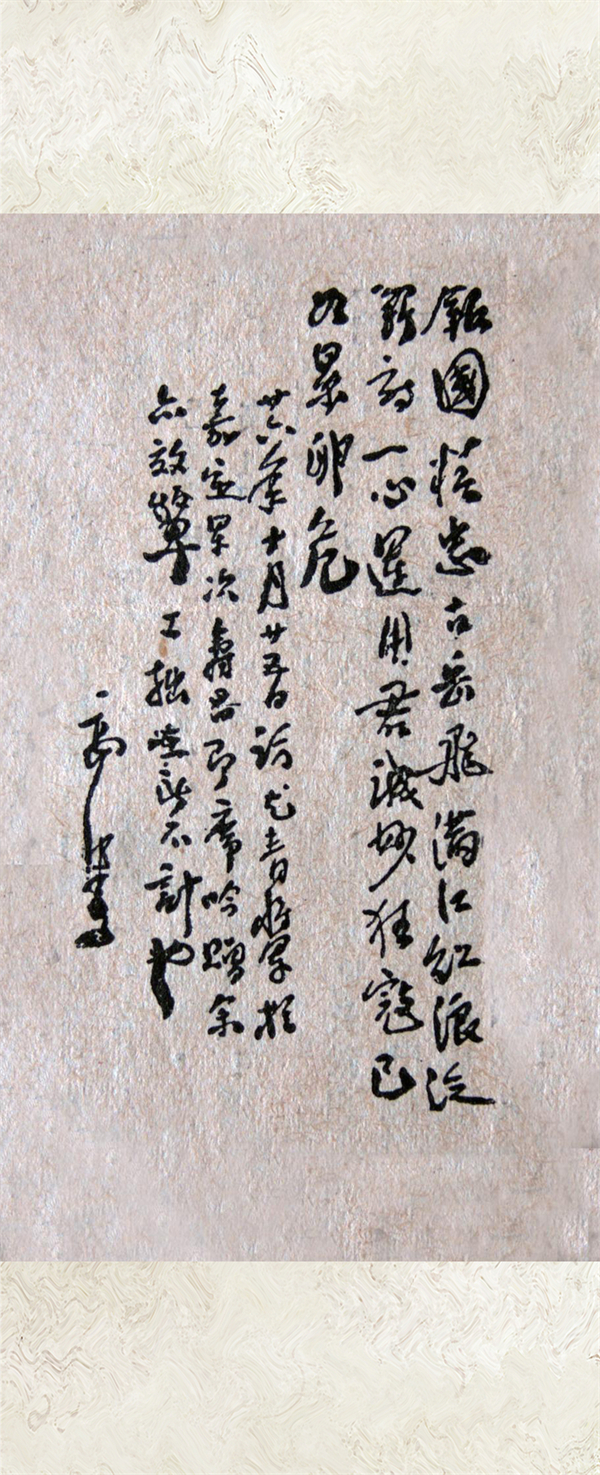 報國精忠古岳飛滿江紅浪泛
詩一心運用君誠妙狂寇已
如累卵危
廿六年十月廿五日訪尤青將軍於
嘉定軍次壽昌即席吟贈余
亦效顰工拙所不計也